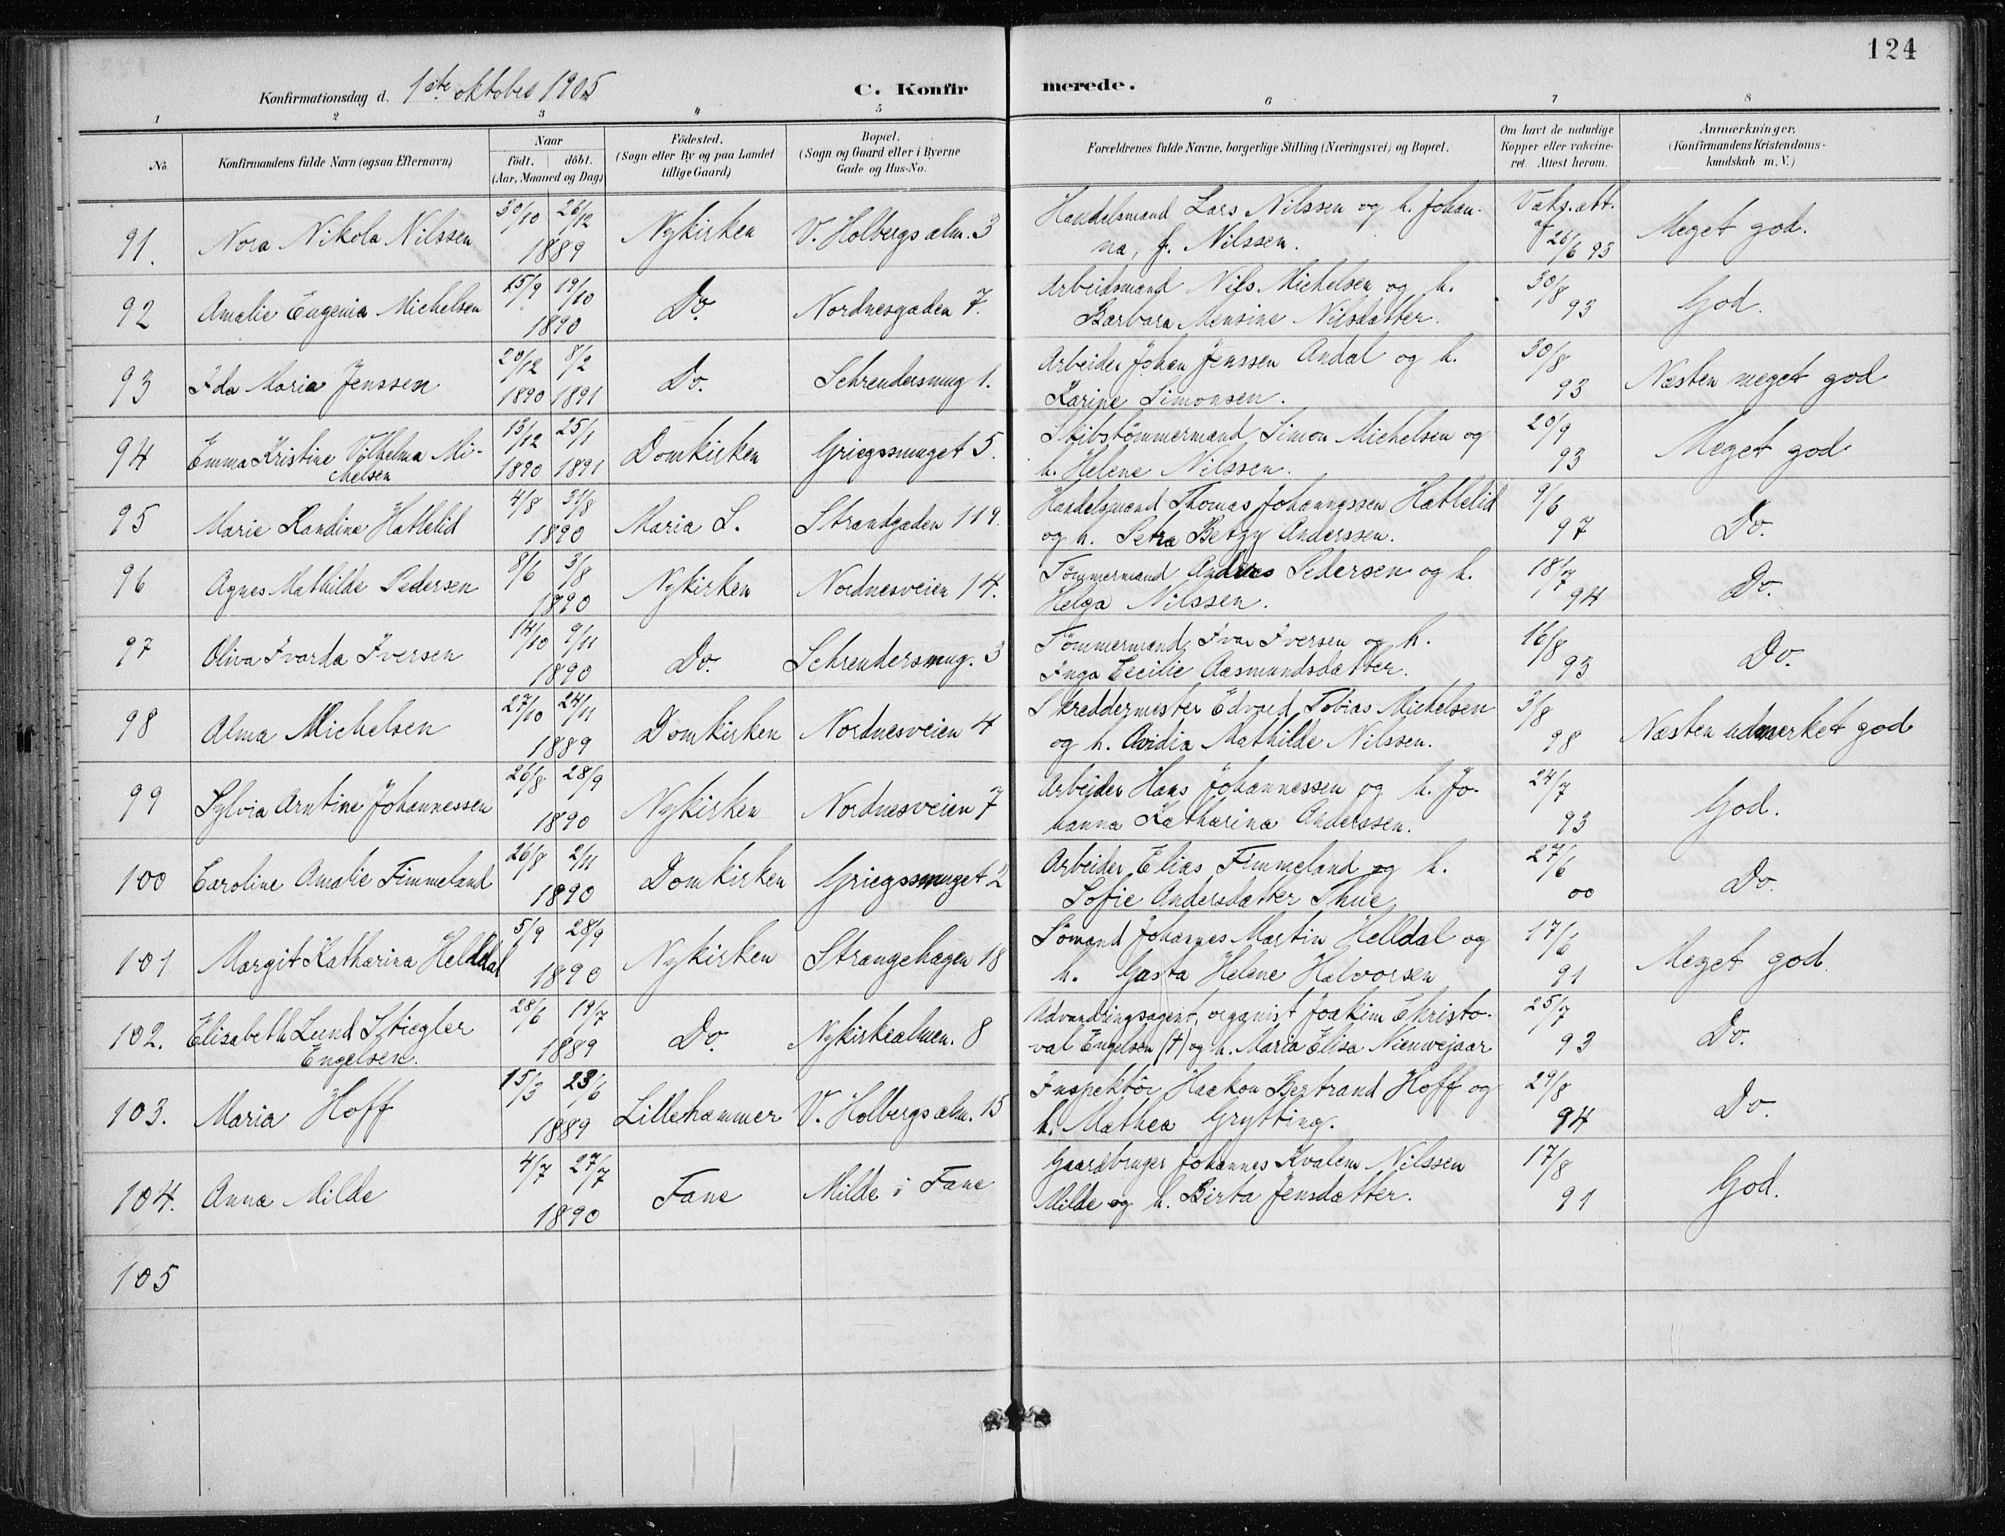 124
Konfirmationsdag d. 1ste oktober 1905
C. Konfirmerede.
1 2 3 4 5 6 7 8
No. Konfirmandens fulde Navn (ogsaa Efternavn) Naar født. døbt. (Aar, Maaned og Dag) Fødested. (Sogn eller By og paa Landet tillige Gaard) Bopæl. (Sogn og Gaard eller i Byerne Gade og Hus-No. Forældrenes fulde Navne, borgerlige Stilling (Næringsvei) og Bopæl. Om havt de naturlige Kopper eller vakcineret. Attest herom. Anmærkninger. (Konfirmandens Kristendomskundskab m. V.)
91. Nora Nikola Nilssen 30/10 26/12 1889 Nykirken V. Holbergsalm. 3 Handelsmand Lars Nilssen og h. Johan-
na, f. Nilssen. Vaks.att. af 26/6 93 Meget god.
92 Amalie Eugenia Michelsen 15/9 19/10 1890 Do. Nordnesgaden 7. Arbeidsmand Nils Michelsen og h.
Barbara Mensine Nilsdatter. 30/8 93 God.
93 Ida Maria Jenssen 20/12 1890 8/2 1891 Do. Schrendersmug 1. Arbeider Johan Jenssen Andal og h.
Karine Simonsen. 30/8 93 Næsten meget god
94 Emma Kristine Vilhelma Mi-
chelsen 13/12 1890 25/1 1891 Domkirken Griegssmuget 5. Skibstømmermand Simon Michelsen og
h. Helene Nilssen. 20/9 93 Meget god
95 Marie Randine Hatlelid 4/8 31/8 1890 Maria L. Strandgaden 119. Handelsmand Thomas Johannessen Hatlelid
og h. Petra Betzy Anderssen. 9/6 97 Do.
96 Agnes Mathilde Pedersen 8/6 3/8 1890 Nykirken Nordnesveien 14. Tømmermand Anders Pedersen og h.
Helga Nilssen. 18/7 94 Do.
97 Oliva Ivarda Iversen 14/10 9/11 1890 Do. Schrendersmug. 3 Tømmermand Ivar Iversen og h.
Inga Cecilie Aasmundsdatter. 16/8 93 Do.
98 Alma Michelsen 27/10 24/11 1889 Domkirken Nordnesveien 4 Skreddermester Edvard Tobias Michelsen
og h. Ovidia Mathilde Nilssen. 3/8 98 Næsten udmerket god
99 Sylvia Arntine Johannessen 26/8 28/9 1890 Nykirken Nordnesveien 7 Arbeider Hans Johannessen og h. Jo-
hanna Katharina Anderssen. 24/7 93 God.
100 Caroline Amalie Fimmeland 26/8 2/11 1890 Domkirken Griegssmuget 2 Arbeider Elias Fimmeland og h.
Sofie Andersdatter Thue 27/6 00 Do.
101 Margit Katharina Helldal 5/9 28/9 1890 Nykirken Strangehagen 18 Sømand Johannes Martin Helldal og
h. Gusta Helene Halvorsen 17/6 91 Meget god.
102. Elisabeth Lund Stiegler
Engelsen. 28/6 19/7 1889 Do. Nykirkealmen. 8 Udvandringsagent, organist Joakim Christo-
val Engelsen (†) og h. Maria Elisa Nieuwejaar 25/7 93 Do.
103. Maria Hoff 15/3 23/6 1889 Lillehammer V. Holbergsalm. 15 Inspektør Haakon Bertrand Hoff og
h. Mathea Grytting. 29/8 94 Do.
104. Anna Milde 4/7 27/7 1890 Fane Milde i Fane Gaardbruger Johannes Kvalem Nilssen
Milde og h. Birta Jensdatter. 17/8 91 God.
105